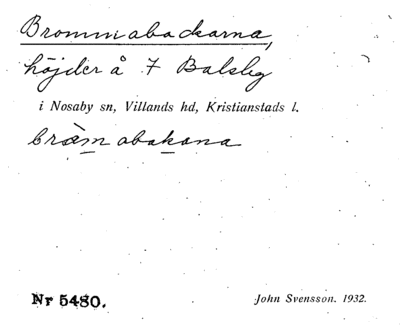 Brommabackarna,
höjder å 7 Balsby
i Nosaby sn, Villands hd, Kristianstads l.
bræ̀mabakana
Nr 5480.
John Svensson. 1932.